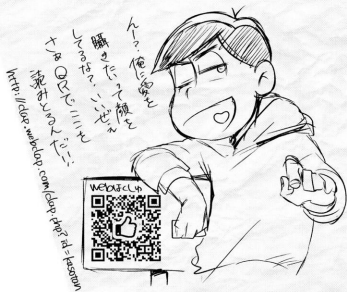 んー?俺に愛を
囁きたいって顔を
してるな?いいぜぇ
さぁQRでここを
読みとるんだい!
http://clap.webclap.com/clap.php?id=tasotan
web拍手